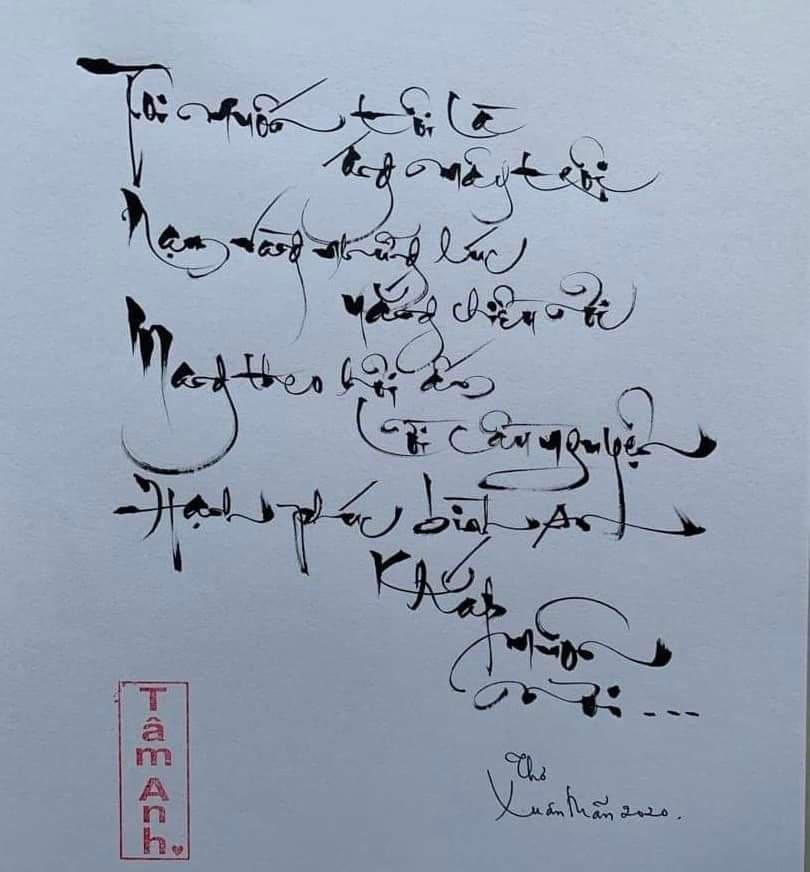 Tôi muốn tôi là
áng mây trôi
Nhẹ nhàng những lúc
nắng chiều rồi
Mang theo hơi ấm
lời cầu nguyện
Hạnh phúc bình An
Khắp muôn
nơi ...
Thơ
Xuân Mẫn 2020.
Tâm Anh